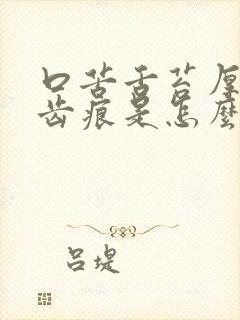 口苦舌苔厚
齿痕是怎麼
吕堤